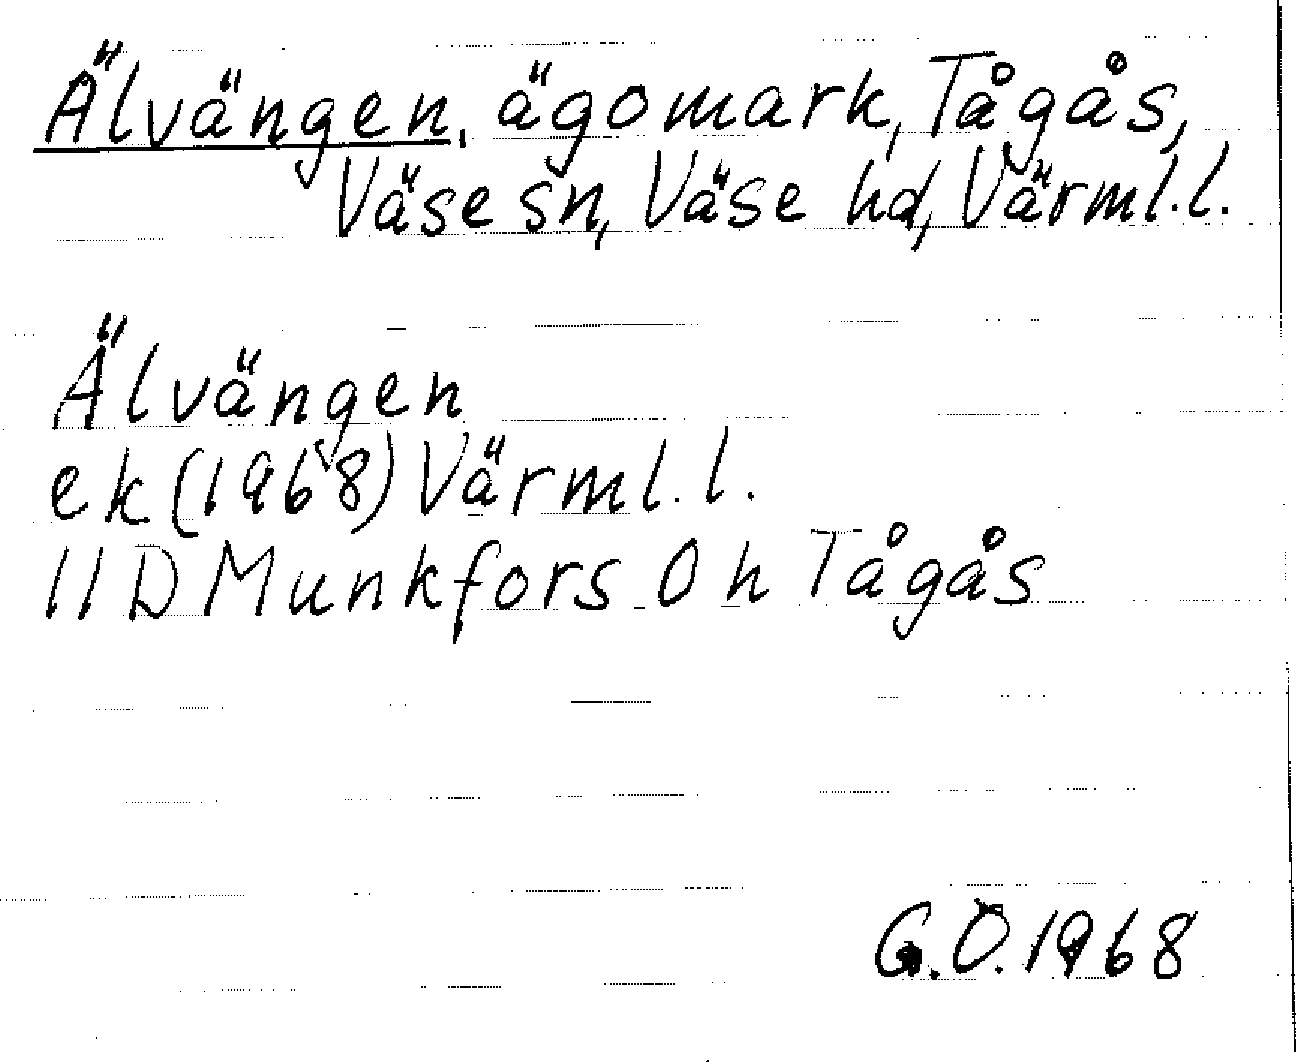 Älvängen, ägomark, Tågås,
Väse sn, Väse hd, Värml.l.
Älvängen
ek (1968) Värml.l.
11D Munkfors 0h Tågås
G.Ö. 1968